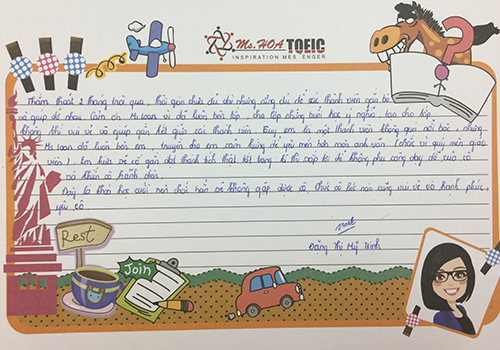 Ms.HOA TOEIC
INSPIRATION MES ENGER
Thấm thoắt 2 tháng trôi qua, thời gian chưa đủ dài nhưng cũng đủ để các thành viên gắn bó
và giúp đỡ nhau. Cảm ơn Ms Loan vì đã luôn bên lớp, cho lớp những buổi học ý nghĩa, tạo cho lớp
không khí vui vẻ và giúp gắn kết giữa các thành viên. Tuy em là một thành viên không quá nổi bật nhưng
Ms Loan đã luôn bên em, truyền cho em cảm hứng để yêu môn hơn môn anh văn (chắc vì quý mến giáo
viên). Em hứa sẽ cố gắn đạt thành tích thật tốt trong kì thi sắp tới để không phụ công dạy dỗ của cô
và khiến cô hãnh diện.
Đây là khóa học cuối nên chắc hẳn sẽ không gặp được cô. Chúc cô lúc nào cũng vui vẻ và hạnh phúc.
yêu cô
Đặng Thị Mỹ Trinh
Rest
Join